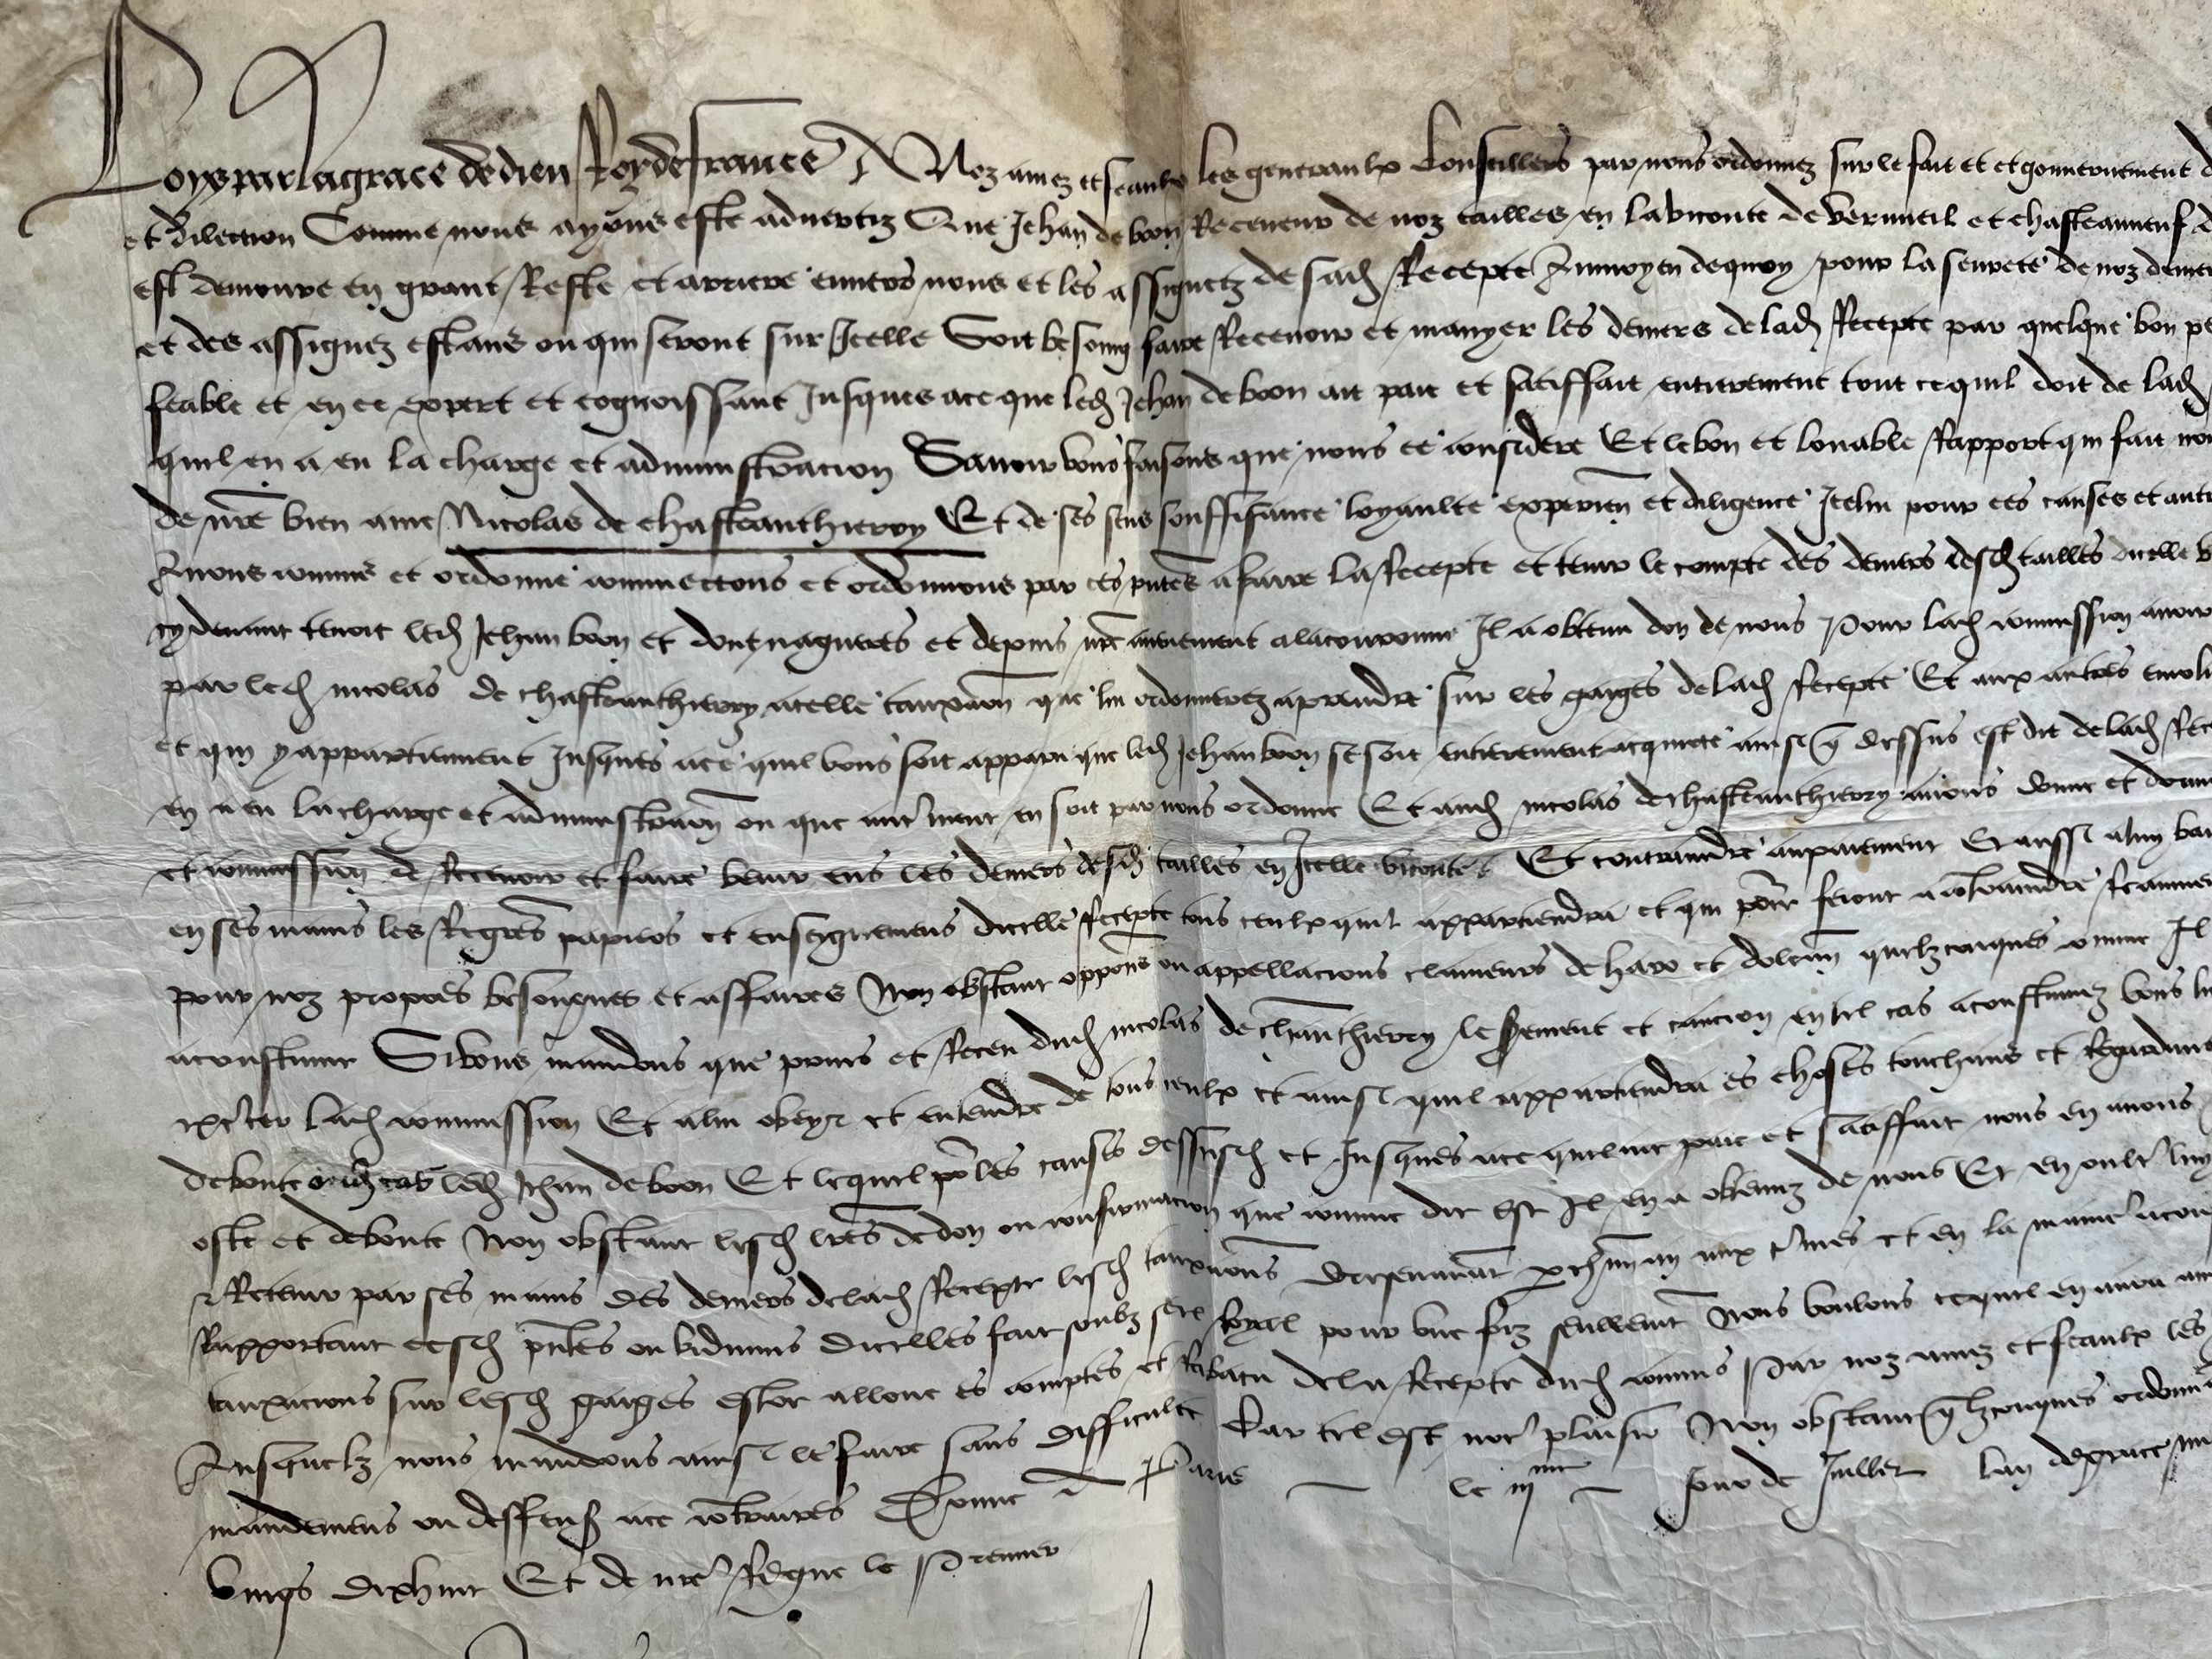 Loys par la grace de dieu Roy de france A Noz amez et feaulx les generaulx Conseillers par nous ordonnez sur le fait et et gouvernement d
et dilection Comme nous ayons este advertiz Que Jehan de boon Receveur de noz tailles en la viconte de verneuil et chasteauneuf
est demoure en grant Reste et arriere envers nous et les assignez de sad Recepte Au moyen de quoy pour la seurete de noz denie
et des assignez estans ou qui seront sur Icelle Soit besoing faire Recevoir et manyer les deniers de lad Recepte par quelque bon pe
feable et en ce expert et cognoissant Jusques ace que led Jehan de boon ait paie et satisffait entierement tout ce quil doit de lad
quil en a eu la charge et administracion Savoir vous faisons que nous ce considere Et le bon et louable Rapport qui fait nou
de nre bien ame Nicolas de chasteauthierry Et de ses sens souffisance loyaulte experien et diligence Icelui pour ces causes et autr
Avons commis et ordonne commectons et ordonnons par ces pntes a faire la Recepte et tenir le compte des deniers desd tailles dicelle v
cy devant tenoit led Jehan boon et dont nagueres et depuis nre advenement ala couronne Il a obtenu don de nous Pour lad commission avoir
par led nicolas de chasteauthierry a telle tauxacon que lui ordonnerez aprendre sur les gaiges de lad Recepte Et aux autres emolu
et qui y appartiennent Jusques ace quil vous soit apparu que led Jehan boon se soit entierement acquicte ainsi q dessus est dit de lad Rec
en a eu la charge et administracon ou que autrment en soit par nous ordonne Et aud nicolas de chasteauthierry avons donne et donn
et commission de Recevoir et faire venir ens les deniers desd tailles en Icelle viconte Et contraindre au paiement Et aussi a luy bai
en ses mains les Regres papiers et enseignemens dicelle Recepte tous ceulx quil appartiendra et qui pour feront a contraindre
pour noz propres besongnes et affaires Non obstant opposons ou appellacions clameurs de haro et quelzconques comme Il
acoustume Si vous mandons que prins et Receu dud nicolas de chauthierry le serment et caucion en tel cas acoustumez vous lu
excter lad commission Et a lui obeyr et entendre de tous ceulx et ainsi quil appartiendra es choses touchans et Regardans
deboute led Jehan de boon Et lequel por les causes dessusd et Jusques ace quil ait paie et satisffait nous en avons
oste et deboute Non obstant lesd lres de don ou confirmacion que comme dit est Il en a obtenuz de nous Et en oultr luy
Retenir par ses mains des deniers de lad Recepte lesd tauxacons doresenavant par chun an aux trmes et en la manire acou
Rapportant cesd pntes ou vidimus dicelles fait soubz seel Royal pour une foiz seullement Nous voulons ce quil en aura
tauxacions sur lesd gaiges estre alloue es comptes et Rabatu de la Recepte dud commis Par noz amez et feaulx les
Ausquelz nous mandons ainsi le faire sans difficulte Car tel est nor plaisir Non obstant qlzconques ordonn
mandemens ou deffens ace contraires Donne A Paris le iij jour de Juillet lan de grace mi
vings dixhuit Et de nre Regne le Premier